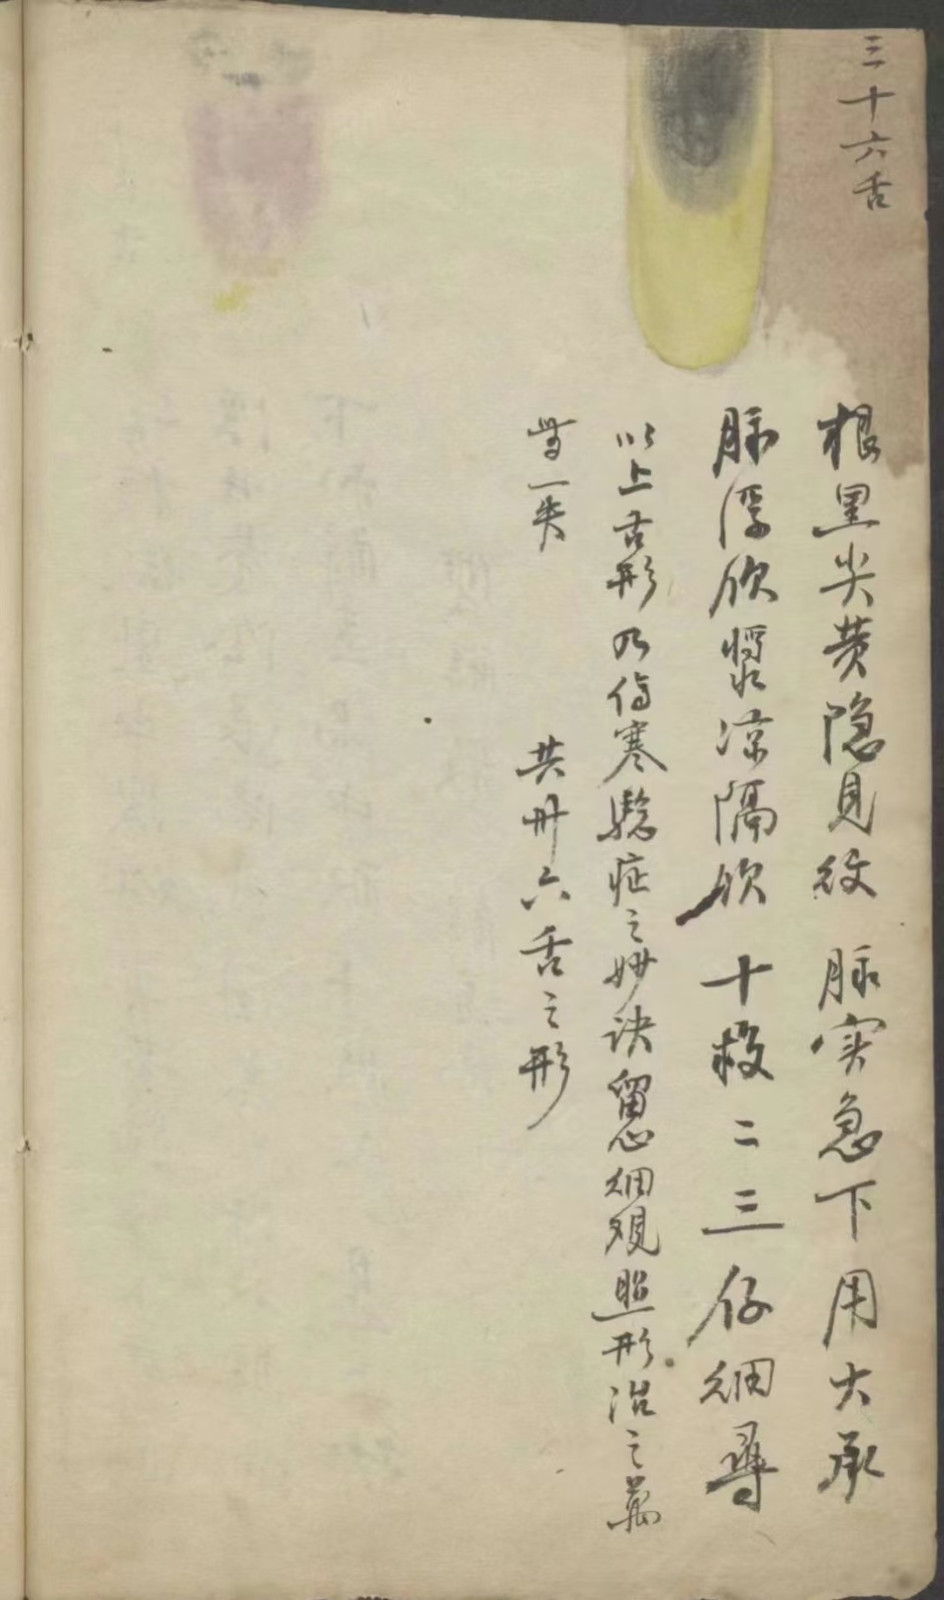 三十六舌
根黑尖黄隐見紋 脉实急下用大承
脉浮飲漿凉隔飲 十救二三仔细尋
以上舌形乃傷寒驗症之妙訣留心细观照形治之萬
無一失 共卅六舌之形